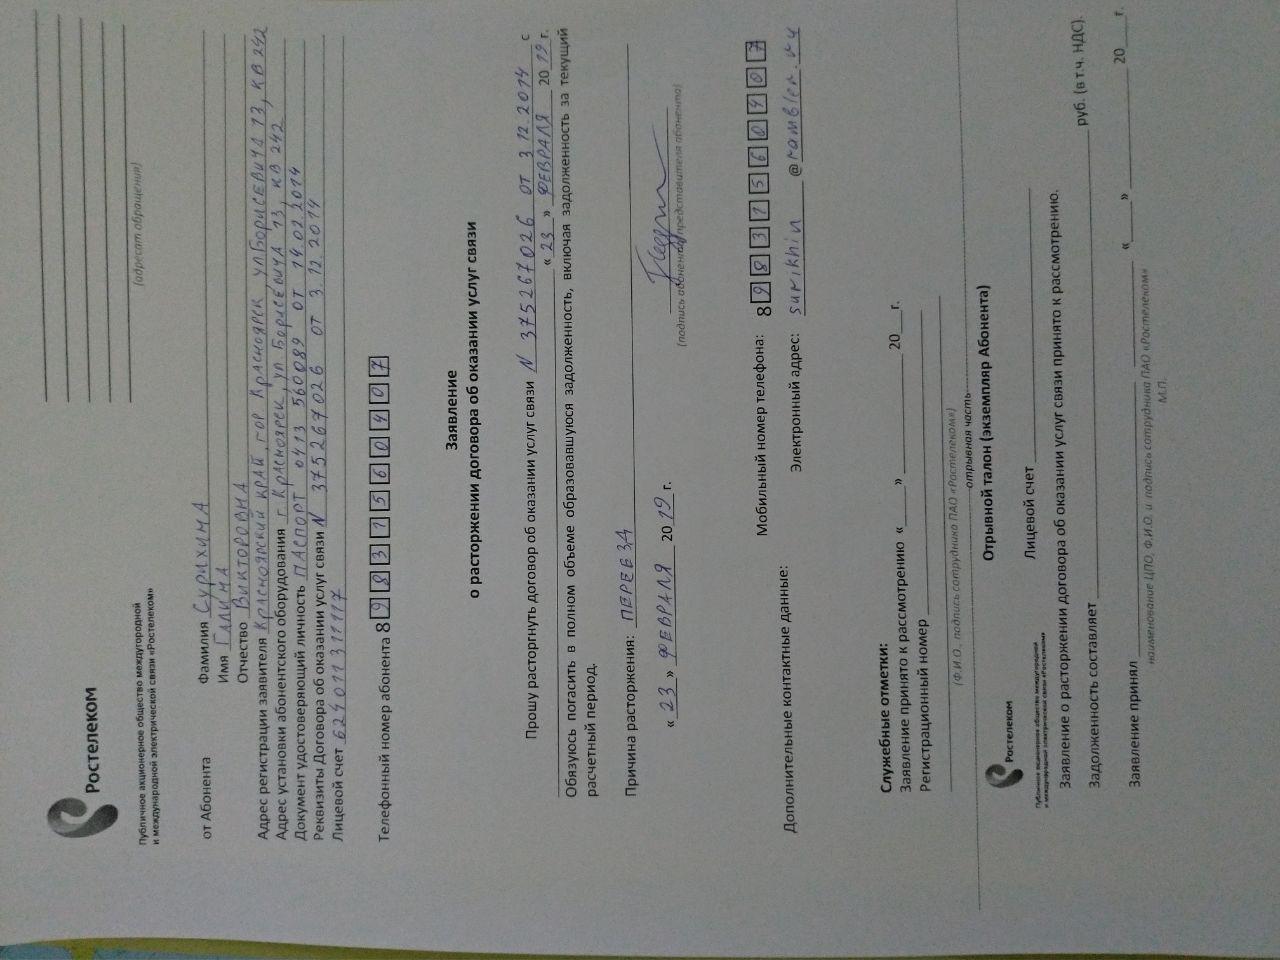 Ростелеком
Публичное акционерное общество междугородной
и международной электрической связи «Ростелеком»
(адресат обращения)
от Абонента
Фамилия Сурихина
Имя Галина
Отчество Викторовна
Адрес регистрации заявителя Красноярский край гор Красноярск, ул Борисевича 13, кв 242
Адрес установки абонентского оборудования г. Красноярск, ул Борисевича 13, кв 242
Документ удостоверяющий личность ПАСПОРТ 0413 560089 от 14.02.2014
Реквизиты Договора об оказании услуг связи N 375267026 от 3.12.2014
Лицевой счет
Телефонный номер абонента 8 9 8 3 1 5 6 0 4 0 7
Заявление
о расторжении договора об оказании услуг связи
Прошу расторгнуть договор об оказании услуг связи N 375267026 от 3.12.2014 с
« 23 » ФЕВРАЛЯ 20 19 г.
Обязуюсь погасить в полном объеме образовавшуюся задолженность, включая задолженность за текущий
расчетный период.
Причина расторжения: ПЕРЕЕЗД
(подпись абонента/представителя абонента)
« 23 » ФЕВРАЛЯ 20 19 г.
Дополнительные контактные данные:
Мобильный номер телефона: 8 9 8 3 1 5 6 0 4 0 7
Электронный адрес: surikhin @rambler.ru
Служебные отметки:
Заявление принято к рассмотрению « » 20 г.
Регистрационный номер
(Ф.И.О. подпись сотрудника ПАО «Ростелеком»)
отрывная часть
Отрывной талон (экземпляр Абонента)
Ростелеком
Публичное акционерное общество междугородной
и международной электрической связи «Ростелеком»
Лицевой счет
Заявление о расторжении договора об оказании услуг связи принято к рассмотрению.
Задолженность составляет руб. (в т.ч. НДС).
Заявление принял « » 20 г.
наименование ЦПО, Ф.И.О. и подпись сотрудника ПАО «Ростелеком»
М.П.